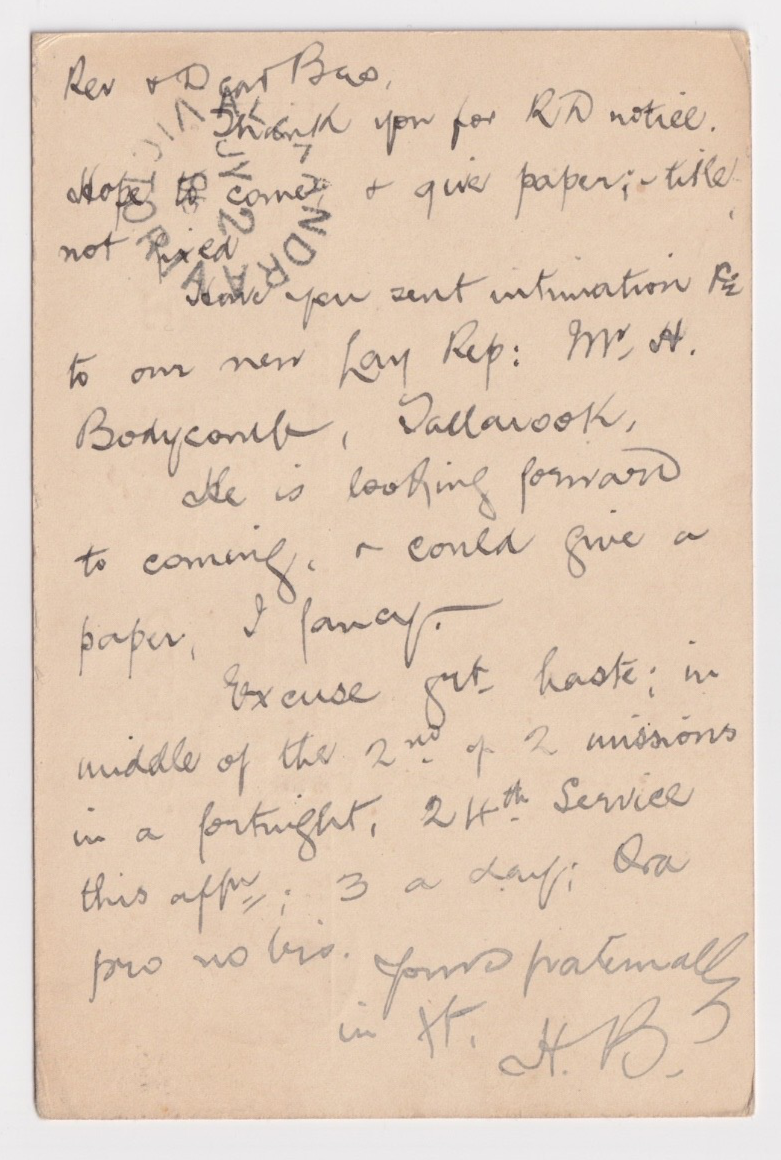 Rev & Dear Bro,
Thank you for RD notice.
Hope to come, & give paper; title
not fixed
Have you sent intimation
to our new Lay Rep: Mr. H.
Bodycomb, Tallarook.
He is looking forward
to coming, & could give a
paper, I fancy.
Excuse grt haste; in
middle of the 2nd of 2 missions
in a fortnight, 24th Service
this aftn; 3 a day; Ora
pro nobis. Yours fraternally
in Xt. H. B.
ALEXANDRA
JY 2
VICTORIA